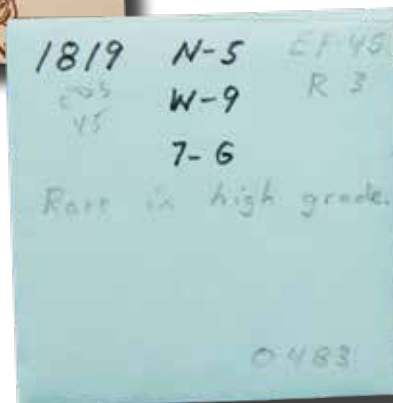 1819 N-5 EF 45
W-9 R 3
45
7-G
Rare in high grade.
0483